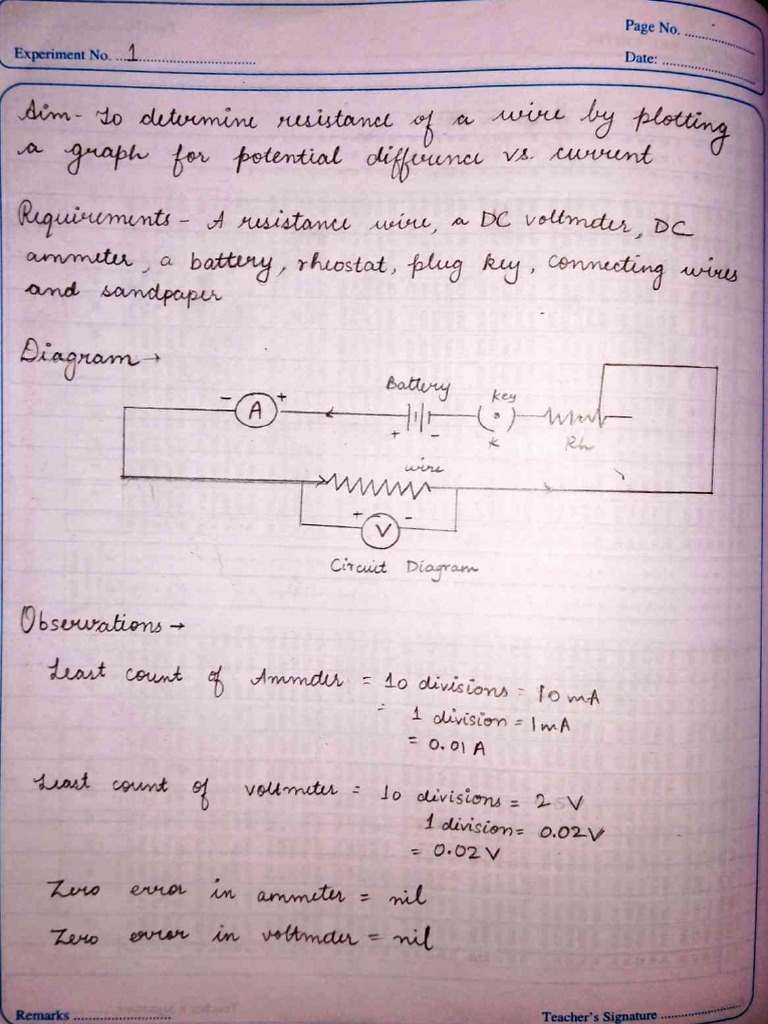 Page No. ..................
Experiment No. ...1..............................
Date: ........................
Aim - To determine resistance of a wire by plotting
a graph for potential difference vs. current
Requirements - A resistance wire, a DC voltmeter, DC
ammeter, a battery, rheostat, plug key, connecting wires
and sandpaper
Diagram →
Battery
key
- A +
+ -
K
Rh
wire
+ V -
Circuit Diagram
Observations →
Least count of Ammeter = 10 divisions = 10 mA
= 1 division = 1mA
= 0.01 A
Least count of voltmeter = 10 divisions = 2 V
1 division = 0.02V
= 0.02 V
Zero error in ammeter = nil
Zero error in voltmeter = nil
Remarks ..........................
Teacher's Signature .....................